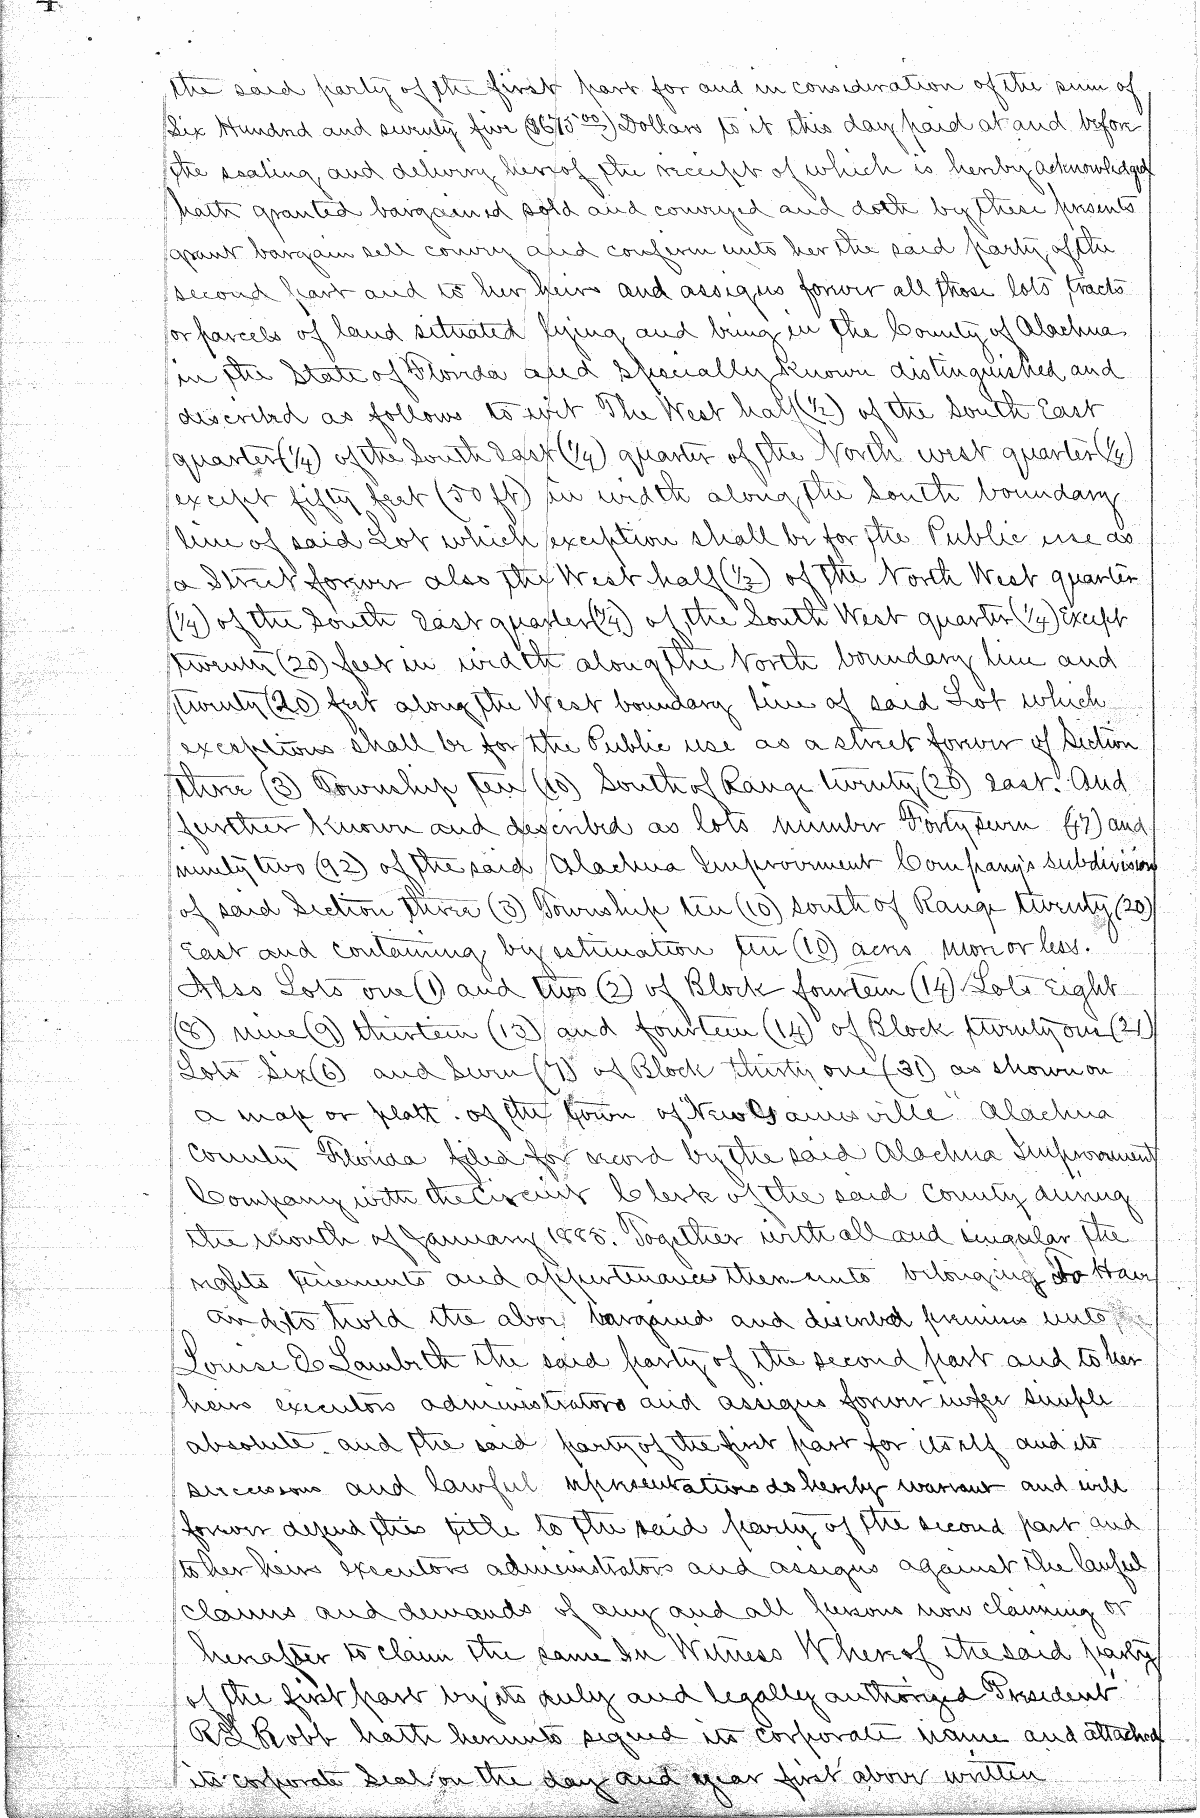 4
the said party of the first part for and in consideration of the sum of
Six Hundred and seventy five ($675 00) Dollars to it this day paid at and before
the sealing and delivery hereof the receipt of which is hereby acknowledged
hath granted bargained sold and conveyed and doth by these presents
grant bargain sell convey and confirm unto her the said party of the
second part and to her heirs and assigns forever all those lots tracts
or parcels of land situated lying and being in the County of Alachua
in the State of Florida and specially known distinguished and
described as follows to wit The West half (1/2) of the South East
quarter (1/4) of the South East (1/4) quarter of the North west quarter (1/4)
except fifty feet (50 ft) in width along the South boundary
line of said Lot which exception shall be for the Public use as
a Street forever also the West half (1/2) of the North West quarter
(1/4) of the South East quarter (1/4) of the South West quarter (1/4) Except
twenty (20) feet in width along the North boundary line and
twenty (20) feet along the West boundary line of said Lot which
exceptions shall be for the Public use as a street forever of Section
three (3) Township ten (10) South of Range twenty (20) east. And
further known and described as lots number Forty seven (47) and
ninety two (92) of the said Alachua Improvement Company's subdivision
of said Section three (3) Township ten (10) south of Range twenty (20)
East and containing by estimation ten (10) acres more or less.
Also Lots one (1) and two (2) of Block fourteen (14) Lots Eight
(8) nine (9) thirteen (13) and fourteen (14) of Block twenty one (21)
Lots Six (6) and Seven (7) of Block thirty one (31) as shown on
a map or platt of the town of New Gainesville" Alachua
County Florida filed for record by the said Alachua Improvement
Company with the Circuit Clerk of the said County during
the month of January 1885. Together with all and singular the
rights tenements and appurtenances thereunto belonging To Have
and to hold the above bargained and described premises unto
Louise D Lambeth the said party of the second part and to her
heirs executors administrators and assigns forever in fee simple
absolute. and the said party of the first part for itself and its
successors and lawful representatives do hereby warrant and will
forever defend this title to the said party of the second part and
to her heirs executors administrators and assigns against the lawful
claims and demands of any and all persons now claiming or
hereafter to claim the same In Witness Whereof the said party
of the first part by its duly and legally authorized President
Robb hath hereunto signed its corporate name and attached
its corporate Seal on the day and year first above written